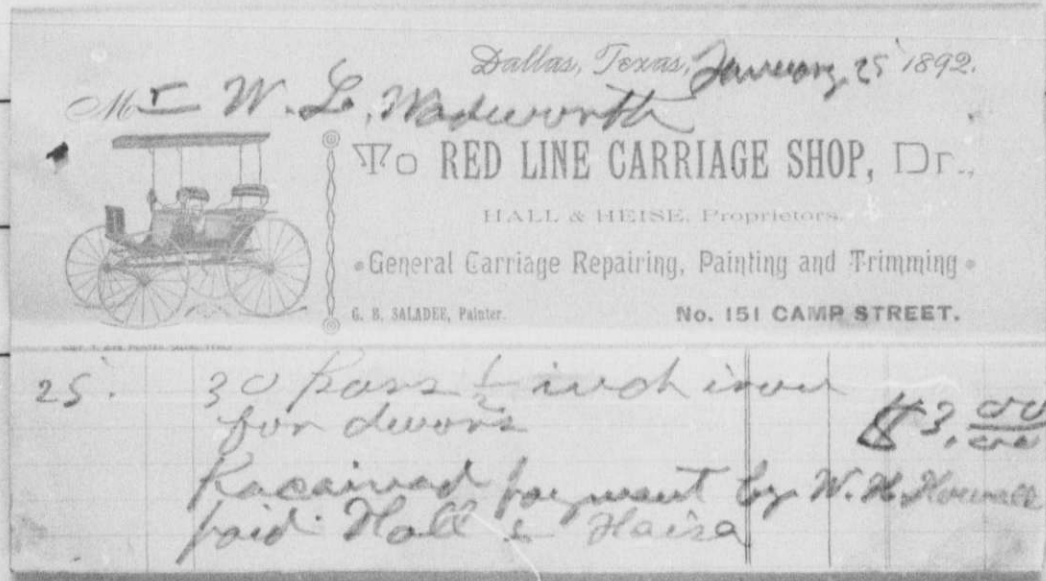 Dallas, Texas, January 25 1892.
Mr W. L. Wadsworth
To RED LINE CARRIAGE SHOP, Dr.,
HALL & HEISE, Proprietors.
General Carriage Repairing, Painting and Trimming
G. B. SALADEE, Painter. No. 151 CAMP STREET.
25. 30 bars ½ inch iron
for doors $3.00
Received payment by W. H.
paid Hall & Haisa